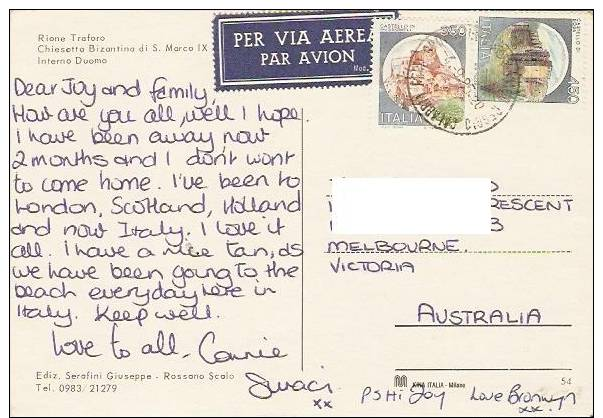 Rione Traforo
Chiesetta Bizantina di S. Marco IX
Interno Duomo
PER VIA AEREA
PAR AVION
Mod.
CASTELLO DI
350
ITALIA
ITALIA
450
Dear Joy and family,
How are you all, well I hope.
I have been away now
2 months and I don't want
to come home. I've been to
London, Scotland, Holland
and now Italy. I love it
all. I have a nice tan, as
we have been going to the
beach everyday here in
Italy. Keep well.
Love to all. Connie
xx
RESCENT
3
MELBOURNE.
VICTORIA
AUSTRALIA
Ediz. Serafini Giuseppe - Rossano Scalo
Tel. 0983/21279
KINA ITALIA - Milano
54
PS Hi Joy Love Bronwyn
xx.